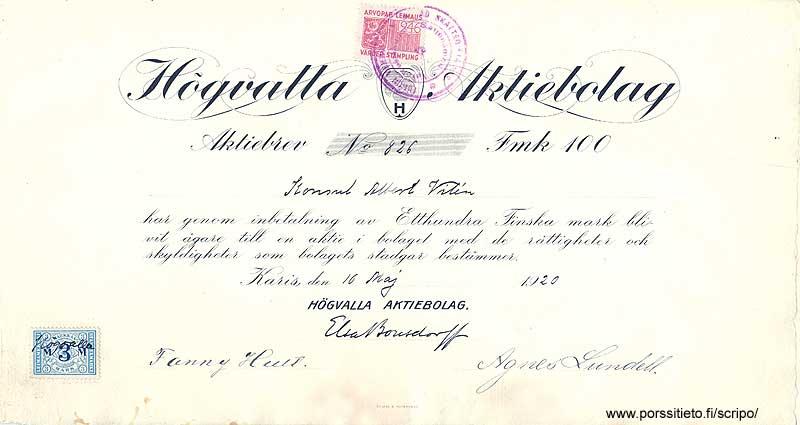 ARVOPAP. LEIMAUS
1946
VÄRDEP. STÄMPLING
Högvalla Aktiebolag
H
Aktiebrev No 826 Fmk 100
Konsul Albert
har genom inbetalning av Etthundra Finska mark bli-
vit ägare till en aktie i bolaget med de rättigheter och
skyldigheter som bolagets stadgar bestämmer.
Karis, den 16 Maj 1920
HÖGVALLA AKTIEBOLAG.
Elsa Bonsdorff
Högvalla
M 3 M
MARK
Fanny Hult. Agnes Lundell.
www.porssitieto.fi/scripo/